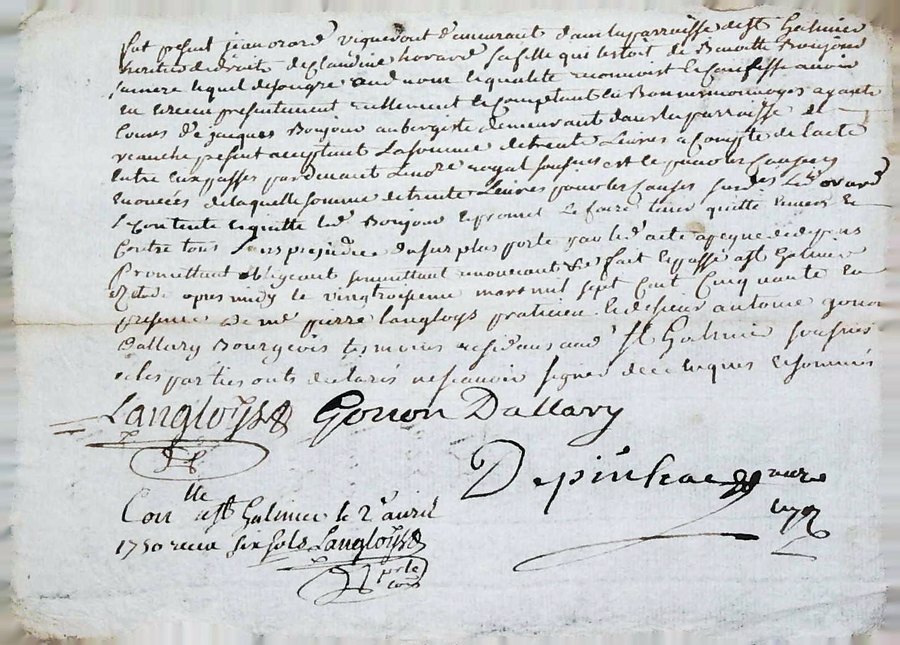 fut present jean orard vigneron demeurant dans la parroisse de st Galmier
heritier de droite de Claudine horard sa fille qui lestoit de Benoitte Boujou
sa mere lequel de son gre aud nom et qualite reconnoist et confesse avoir
eu et receu presentement reellement et comptant en bonnes monnoyes ayants
cours de jacques Boujou aubergiste demeurant dans la parroisse de
present acceptant la somme de trente livres a compte de lacte
entre eux passes par devant le nore royal soubsigné et le pour les causes y
enoncées de laquelle somme de trente livres pour les causes susd led orard
se contente et quitte led Boujou et promet le faire tenir quitte envers et
contre tous sans prejudice du surplus porte par led acte a peyne de depens
Promettant obligeant soumettant renonceant &c fait et passe a st Galmier
etude apres midy le vingt troisieme mars mil sept cent cinquante en
presence de me pierre langloys praticien et de sieur antoine gonon
Dallary Bourgeois tesmoins residans aud st Galmier soubsignés
et les parties onts declarés ne scavoir signer de ce enquises et sommés
Langloys
Gonon Dallary
Depinhac
nore
royal
Conlle a st Galmier le 2e avril
1750 receu six sols Langloys